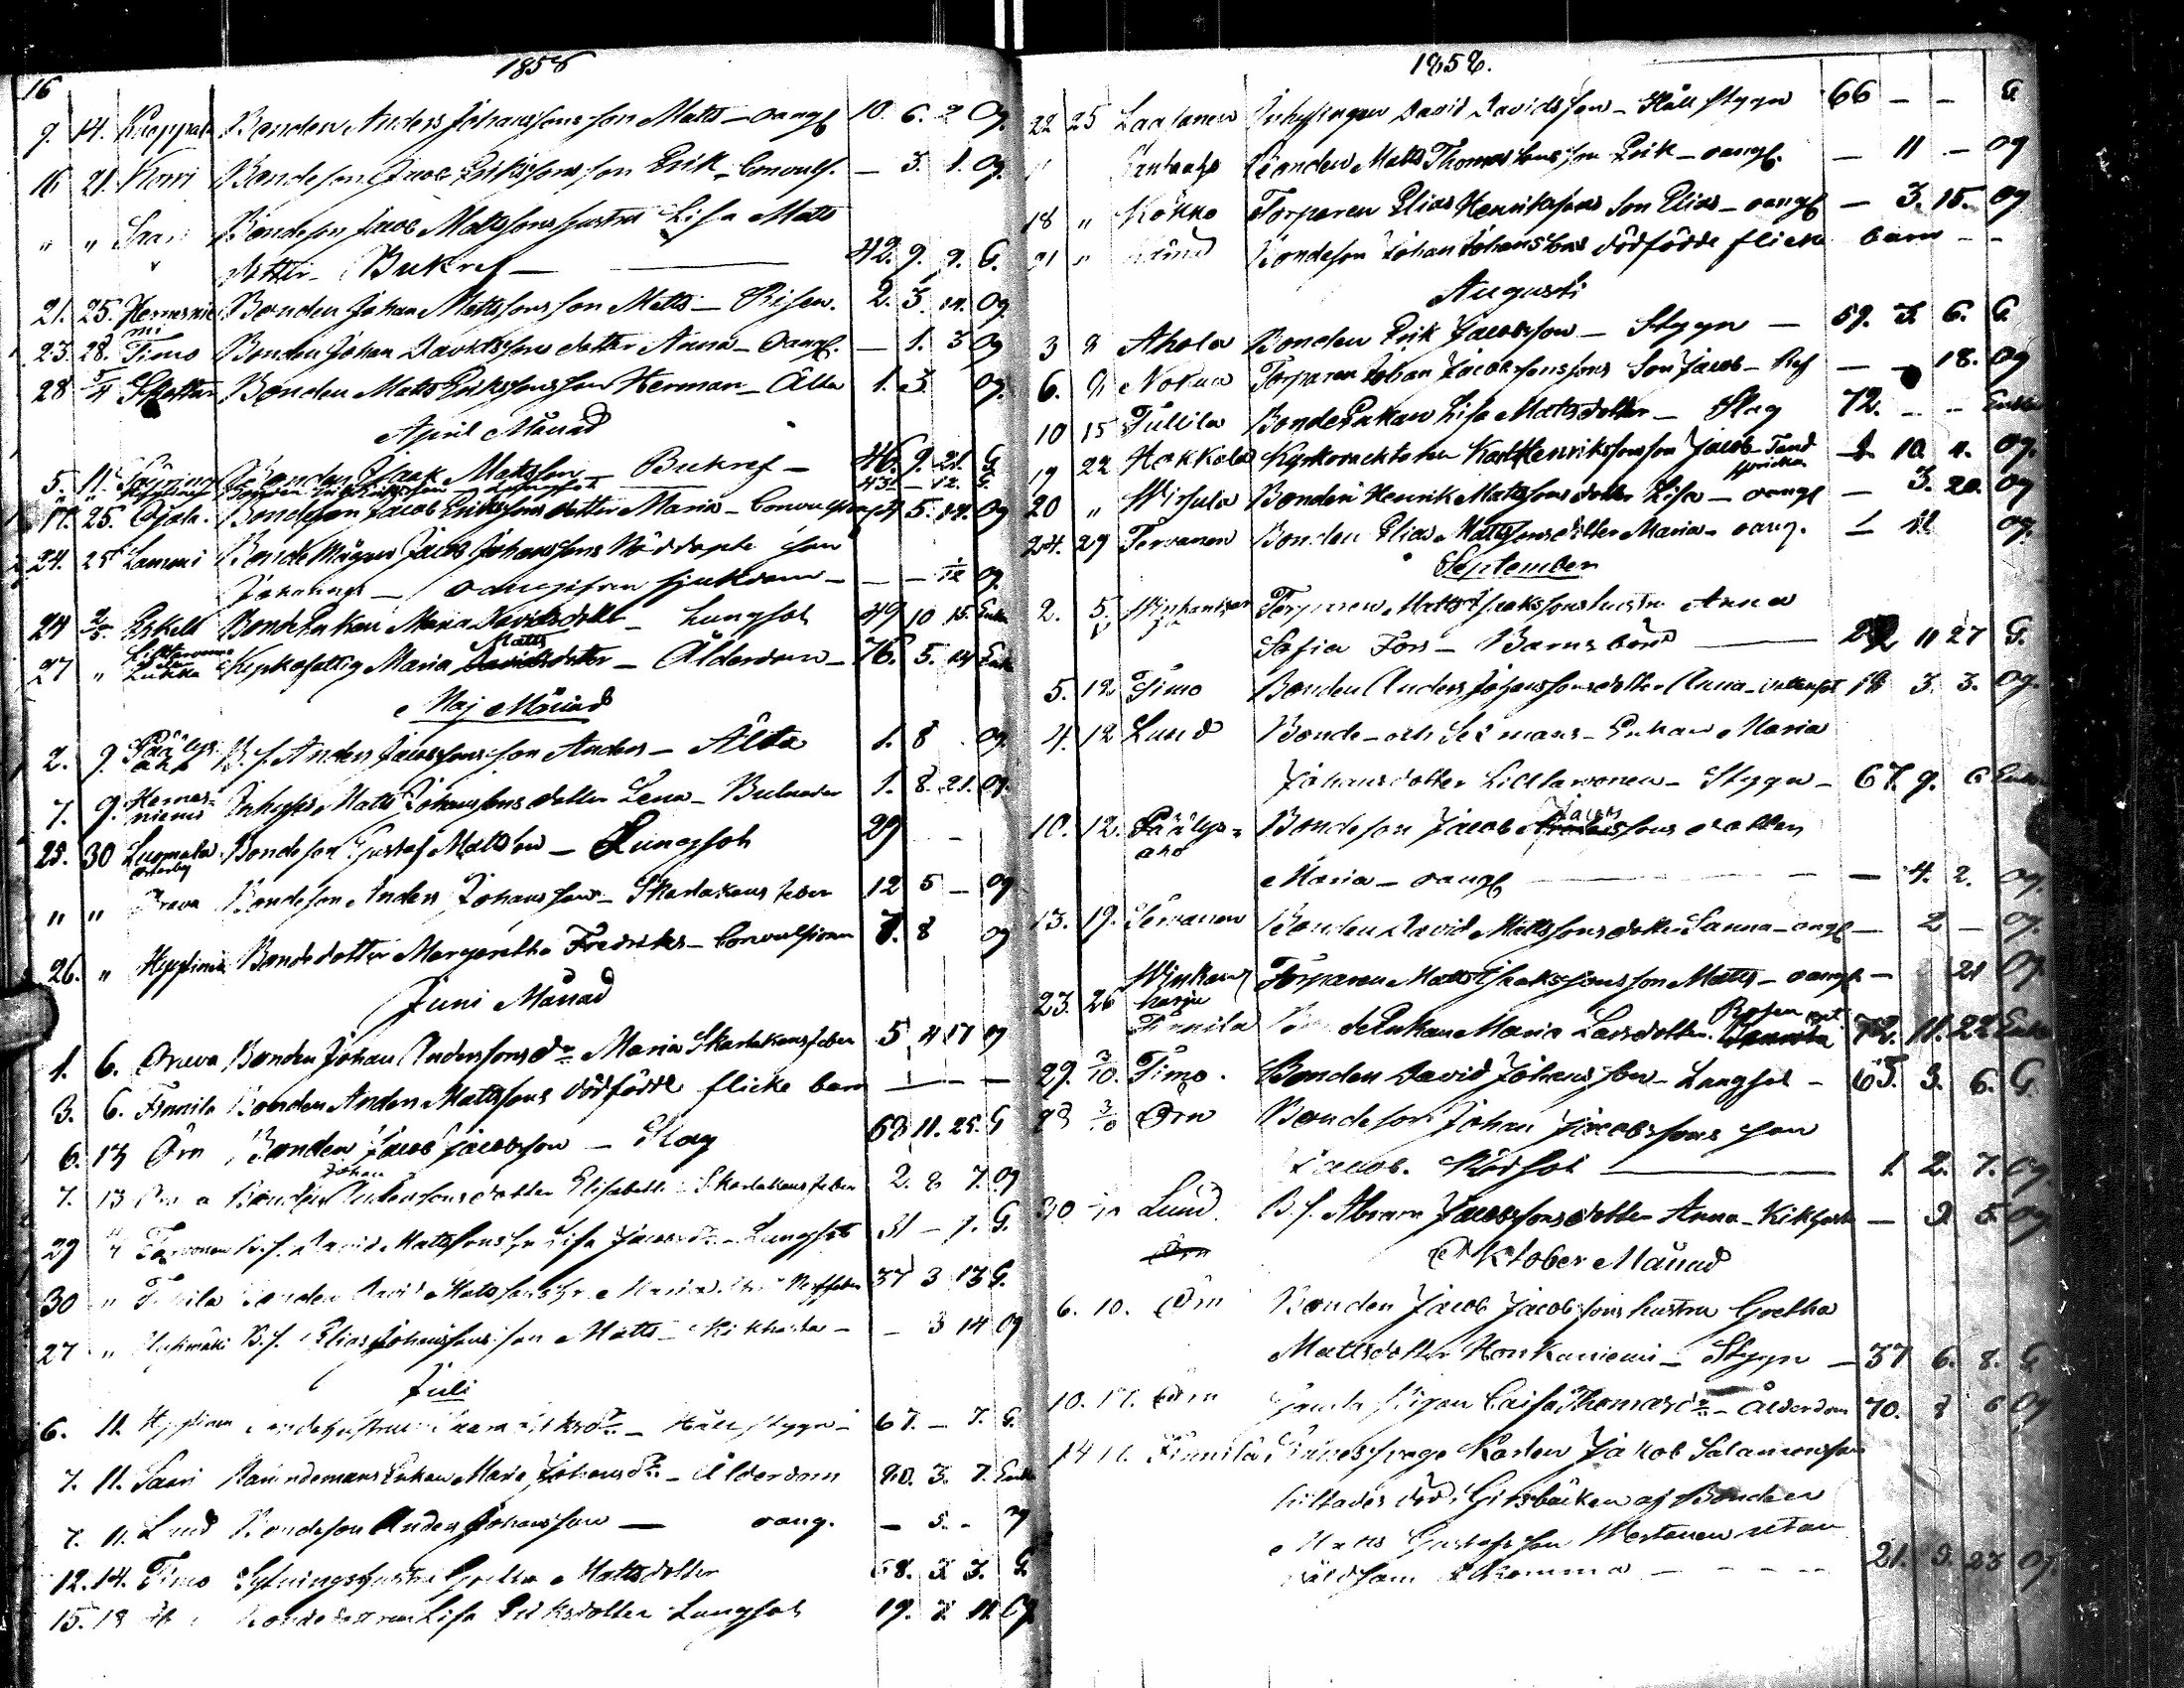 16
1858
9. 14. Knoppala Bonden Anders Johanssons son Matts - oangf 10. 6. 2 Og.
16 21. Korri Bondeson Jacob Erikssons son Erik - Convuls. - 3. 1. Og.
" " Saari Bondeson Jacob Mattssons hustru Lisa Matts
dotter - Bukref - 42. 9. 9. G.
21. 25. Hernesnie Bonden Johan Mattssons son Matts - Risen. 2. 3 14. Og
mi
23. 28. Timo Bonden Johan Davidssons dotter Anna - oangf. - 1. 3 Og
28 5/4 Bonden Matts Erikssons son Herman - Älta 1. 3 Og.
April Månad
5. 11. Bonden Isaak Mattsson - Bukref - 46. 9. 21. G
" " 43 - 12. G.
17. 25. Ojala. Bondeson Jacob Erikssons dotter Maria - Convulsioner 5. 14. Og
24. 25 Lammi Bonde Mågen Jacob Johanssons Nöddöpte son
Johannes - oangifven sjukdom - - - 1/12 Og.
24 2/5 Eskeli Bonde Enkan Maria Davidsdotter - Lungsot 49 10 15. Enka
27 " Lukka Kyrkofattig Maria Matts Davidsdotter - Ålderdom - 76. 5. 14 Enka
Maj Månad
2. 9. Päälys aho B. s. Anders Jacobssons son Anders - Älta 1. 8 Og.
7. 9. Hernes= niemi Inhyses Matts Johanssons dotter Lena - Bulnader 1. 8. 21. Og.
25. 30 Luomala Österby Bondeson Gustaf Mattsson - Lungsot 29 -
" " Orava Bondeson Anders Johansson - Skarlakans feber 12 5 - Og
26. " Hyytinen Bondedotter Margaretha Fredriks - Convulsioner 7. 8 Og
Juni Månad
1. 6. Orava Bonden Johan Anderssons dr Maria Skarlakansfeber 5 4 17 Og
3. 6. Finnila Bonden Anders Mattssons dödfödde flicke barn - - -
6. 13 Örn Bonden Jacob Jacobsson - Slag 68 11. 25. G
7. 13 Orava Bonden Johan Anderssons dotter Elisabeth - Skarlakans feber 2. 8 7. Og
29 4/7 Tervonen B. s. David Mattssons hu Lisa Jacobs dr - Lungsot 31 - 1. G.
30 " Finnila Bonden David Mattssons hu Maria 37 3 13 G.
27 " B. s. Elias Johanssons son Matts - Kikhosta - - 3 14 Og
Juli
6. 11. Hyytinen Bondehustrun - Håll stygn - 67. - 7. G.
7. 11. Saari Nämndemans Enkan Maria Johans dr - Ålderdom 80. 3. 7. Enka
7. 11. Lund Bondeson Anders Johansson - oang. - 5. - Og
12. 14. Timo Sytningshustru Greta Mattsdotter 68. 3 3. G
15. 18 Bondedottren Lisa Eriksdotter Lungsot 19. 7 11. Og
1858.
22 25 Laasanen Inhysingen David Davidsson - Håll stygn 66 - - G
" Bonden Matts Thomassons son Erik - oangf. - 11 - Og
18 " Kokko Torparen Elias Henrikssons son Elias - oangf - 3. 15. Og
21 " Bondeson Johan Johanssons dödfödde flicke barn - -
Augusti
3 8 Ahola Bonden Erik Jacobsson - Stygn - 59. 3. 6. G.
6. 8 Torparen Johan Jacobssons son Jacob - Ref - - 18. Og
10 15 Tullila Bonde Enkan Lisa Mattsdotter - Slag 72. - - Enka
19 22 Hokkola Kyrkovaktaren Karl Henrikssons son Jacob - Tand sprickn 10 Og.
20 " Wirsula Bonden Henrik Mattssons dotter Lisa - oangf - 3. 20. Og
24. 29 Tervonen Bonden Elias Mattssons dotter Maria - oang. 1 11 Og.
September
2. 5. Torparen Matts Isakssons hustru Anna
Sofia Fors - Barnsbörd 11 27 G.
5. 12 Timo Bonden Anders Johanssons dotter Anna - vattusot 12 3. 3. Og.
4. 12 Lund Bonde - och Sexmans - Enkan Maria
Johansdotter Lilltervonen - Stygn - 67. 9. 6 Enka
10. 12. Päälys= aho Bondeson Jacob Jacobs Anderssons dotter
Maria - oangf - 4. 2. Og.
13. 19. Tervonen Bonden David Mattssons dotter Sanna - angf - 2 - Og.
Torparen Matts Isakssons son Matts - oangf - 21 Og
23. 26 Finnila Bonde Enkan Maria Larsdotter. Rosen 72. 11. 22 Enka
29. 3/10. Timo. Bonden David Johansson - Lungsot - 65. 3. 6. G.
28 3/10 Örn Bondeson Johan Jacobssons son
Jacob. 1 2. 7. Og
30 Lund. B. s. Abram Jacobssons dotter Anna - Kikhosta - 9 5 Og
Örn
Oktober Månad
6. 10. Örn Bonden Jacob Jacobssons hustru Gretha
Mattsdotter Honkaniemi - Stygn - 37 6. 8. G
10. 17. Örn Gamla Pigan Caisa Thomasdr - Ålderdom 70. 8 6 Og
14 17. Finnila Karlen Jakob Salamonsson
hittades död i Girsbäcken af Bonden
Matts Gustafsson Mertanen utan
våldsam åkomma - - - 21. 9. 23 Og.